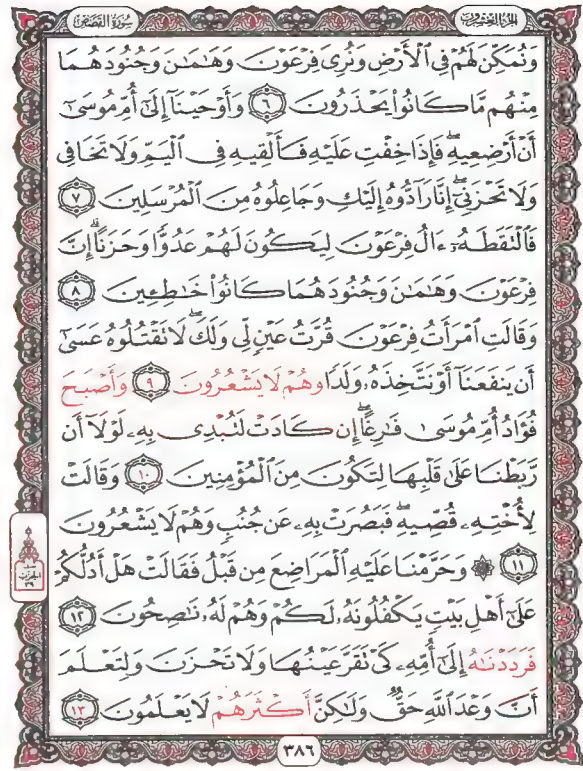 الجزء العشرون
سورة القصص
وَنُمَكِّنَ لَهُمْ فِي ٱلْأَرْضِ وَنُرِيَ فِرْعَوْنَ وَهَٰمَٰنَ وَجُنُودَهُمَا
مِنْهُم مَّا كَانُوا۟ يَحْذَرُونَ ٦ وَأَوْحَيْنَآ إِلَىٰٓ أُمِّ مُوسَىٰٓ
أَنْ أَرْضِعِيهِ ۖ فَإِذَا خِفْتِ عَلَيْهِ فَأَلْقِيهِ فِي ٱلْيَمِّ وَلَا تَخَافِي
وَلَا تَحْزَنِيٓ ۖ إِنَّا رَآدُّوهُ إِلَيْكِ وَجَاعِلُوهُ مِنَ ٱلْمُرْسَلِينَ ٧
فَٱلْتَقَطَهُۥٓ ءَالُ فِرْعَوْنَ لِيَكُونَ لَهُمْ عَدُوًّا وَحَزَنًا ۗ إِنَّ
فِرْعَوْنَ وَهَٰمَٰنَ وَجُنُودَهُمَا كَانُوا۟ خَٰطِـِٔينَ ٨
وَقَالَتِ ٱمْرَأَتُ فِرْعَوْنَ قُرَّتُ عَيْنٍ لِّي وَلَكَ ۖ لَا تَقْتُلُوهُ عَسَىٰٓ
أَن يَنفَعَنَآ أَوْ نَتَّخِذَهُۥ وَلَدًا وَهُمْ لَا يَشْعُرُونَ ٩ وَأَصْبَحَ
فُؤَادُ أُمِّ مُوسَىٰ فَٰرِغًا ۖ إِن كَادَتْ لَتُبْدِي بِهِۦ لَوْلَآ أَن
رَّبَطْنَا عَلَىٰ قَلْبِهَا لِتَكُونَ مِنَ ٱلْمُؤْمِنِينَ ١٠ وَقَالَتْ
لِأُخْتِهِۦ قُصِّيهِ ۖ فَبَصُرَتْ بِهِۦ عَن جُنُبٍ وَهُمْ لَا يَشْعُرُونَ
١١ ۞ وَحَرَّمْنَا عَلَيْهِ ٱلْمَرَاضِعَ مِن قَبْلُ فَقَالَتْ هَلْ أَدُلُّكُمْ
عَلَىٰٓ أَهْلِ بَيْتٍ يَكْفُلُونَهُۥ لَكُمْ وَهُمْ لَهُۥ نَٰصِحُونَ ١٢
فَرَدَدْنَٰهُ إِلَىٰٓ أُمِّهِۦ كَيْ تَقَرَّ عَيْنُهَا وَلَا تَحْزَنَ وَلِتَعْلَمَ
أَنَّ وَعْدَ ٱللَّهِ حَقٌّ وَلَٰكِنَّ أَكْثَرَهُمْ لَا يَعْلَمُونَ ١٣
الحزب
٣٩
٣٨٦